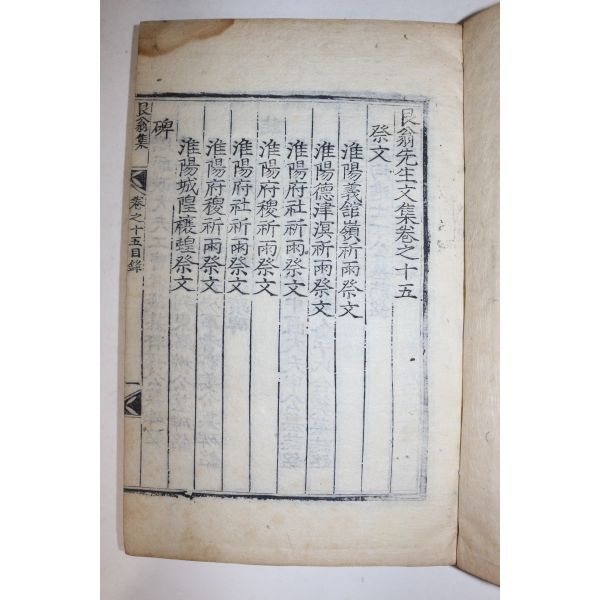 艮翁先生文集卷之十五
祭文
淮陽義館嶺祈雨祭文
淮陽德津溟祈雨祭文
淮陽府社祈雨祭文
淮陽府稷祈雨祭文
淮陽府社祈雨祭文
淮陽府稷祈雨祭文
淮陽城隍禳蝗祭文
碑
艮翁集
卷之十五目錄
一